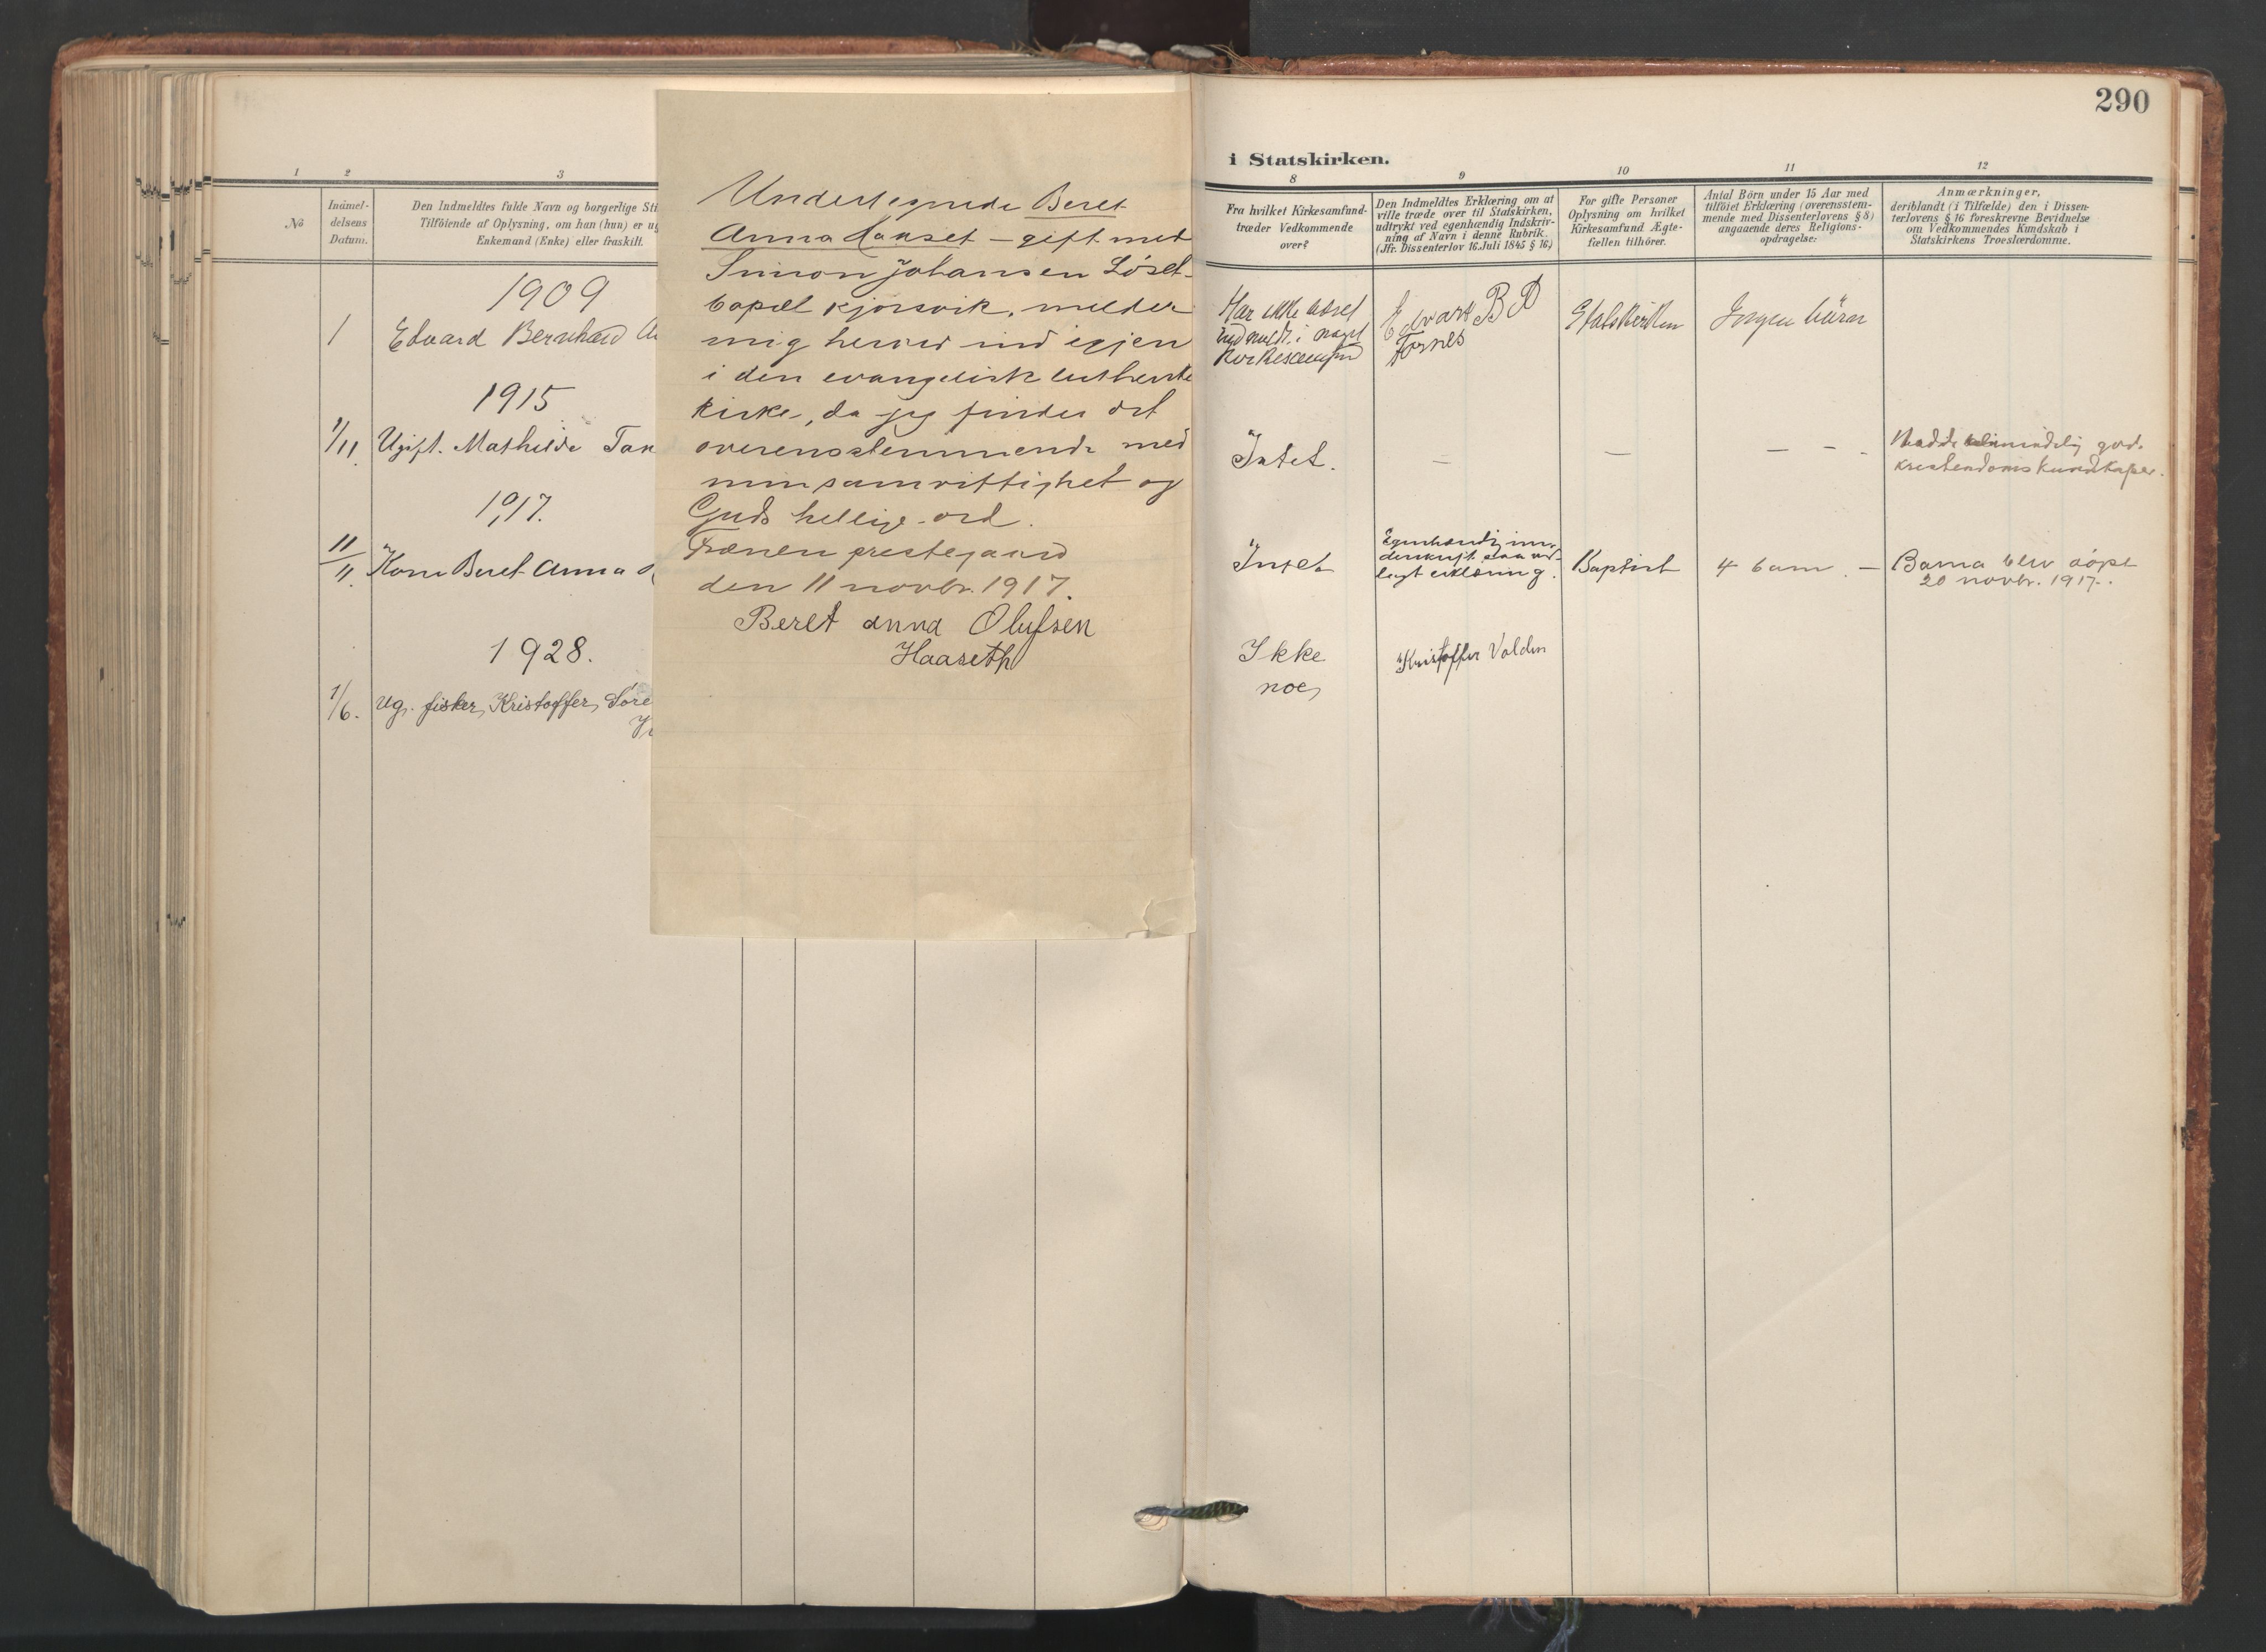 290
i Statskirken.
1 2 3
8 9 10 11 12
No
Indmel-
delsens
Datum.
Den Indmeldtes fulde Navn og borgerlige Sti
Tilföiende af Oplysning, om han (hun) er ug
Enkemand (Enke) eller fraskilt.
Fra hvilket Kirkesamfund
træder Vedkommende
over?
Den Indmeldtes Erklæring om at
ville træde over til Statskirken,
udtrykt ved egenhændig Indskriv-
ning af Navn i denne Rubrik.
(Jfr. Dissenterlov 16. Juli 1845 § 16.)
For gifte Personer
Oplysning om hvilket
Kirkesamfund Ægte-
fællen tilhörer.
Antal Börn under 15 Aar med
tilföiet Erklæring (overensstem-
mende med Dissenterlovens § 8)
angaaende deres Religions-
opdragelse:
Anmærkninger,
deriblandt (i Tilfælde) den i Dissen-
terlovens § 16 foreskrevne Bevidnelse
om Vedkommendes Kundskab i
Statskirkens Troeslærdomme.
1909
1 Edvard Bernhard
1915
1/11 Ugift. Mathilde
1917.
11/11. Kone Beret Anna
1928.
1/6. Ug. fisker, Kristoffer, Söre
Undertegnede Beret
Anna Haaset – gift med
Simon Johansen Löset
bopæl Kjörsvik, melder
mig herved ind igjen
i den evangelisk lutherske
kirke, da jeg finder det
overensstemmende med
min samvittighet og
Guds hellige ord.
Frænen prestegaard
den 11 novbr. 1917.
Beret anna Olufsen
Haaseth
Har ikke været
indmeldt i noget
Kirkesamfund
Edvart B A
Fornes
Statskirken
Ingen
Intet. – – – – -
Hadde almindelig god
kristendomskundskaper.
Intet
Egenhændig un-
derskrift paa ved-
lagt erklæring.
Baptist
4 barn. –
Barna blev döpt
20 novbr. 1917.
Ikke
noe,
Kristoffer Valden